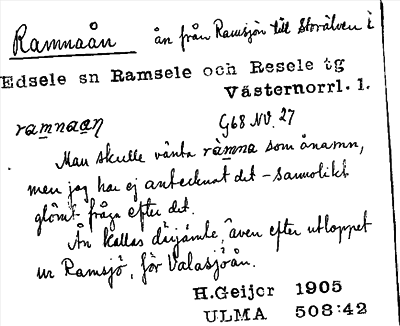 Ramnaån ån från Ramsjön till Storälven i
Edsele sn Ramsele och Resele tg
Västernorrl. l.
ramnaan G68 NV. 27
Man skulle vänta ràmna som ånamn,
men jag har ej antecknat det - sannolikt
glömt fråga efter det.
Ån kallas därjämte, även efter utloppet
ur Ramsjö, för Valasjöån.
H.Geijer 1905
ULMA 508:42